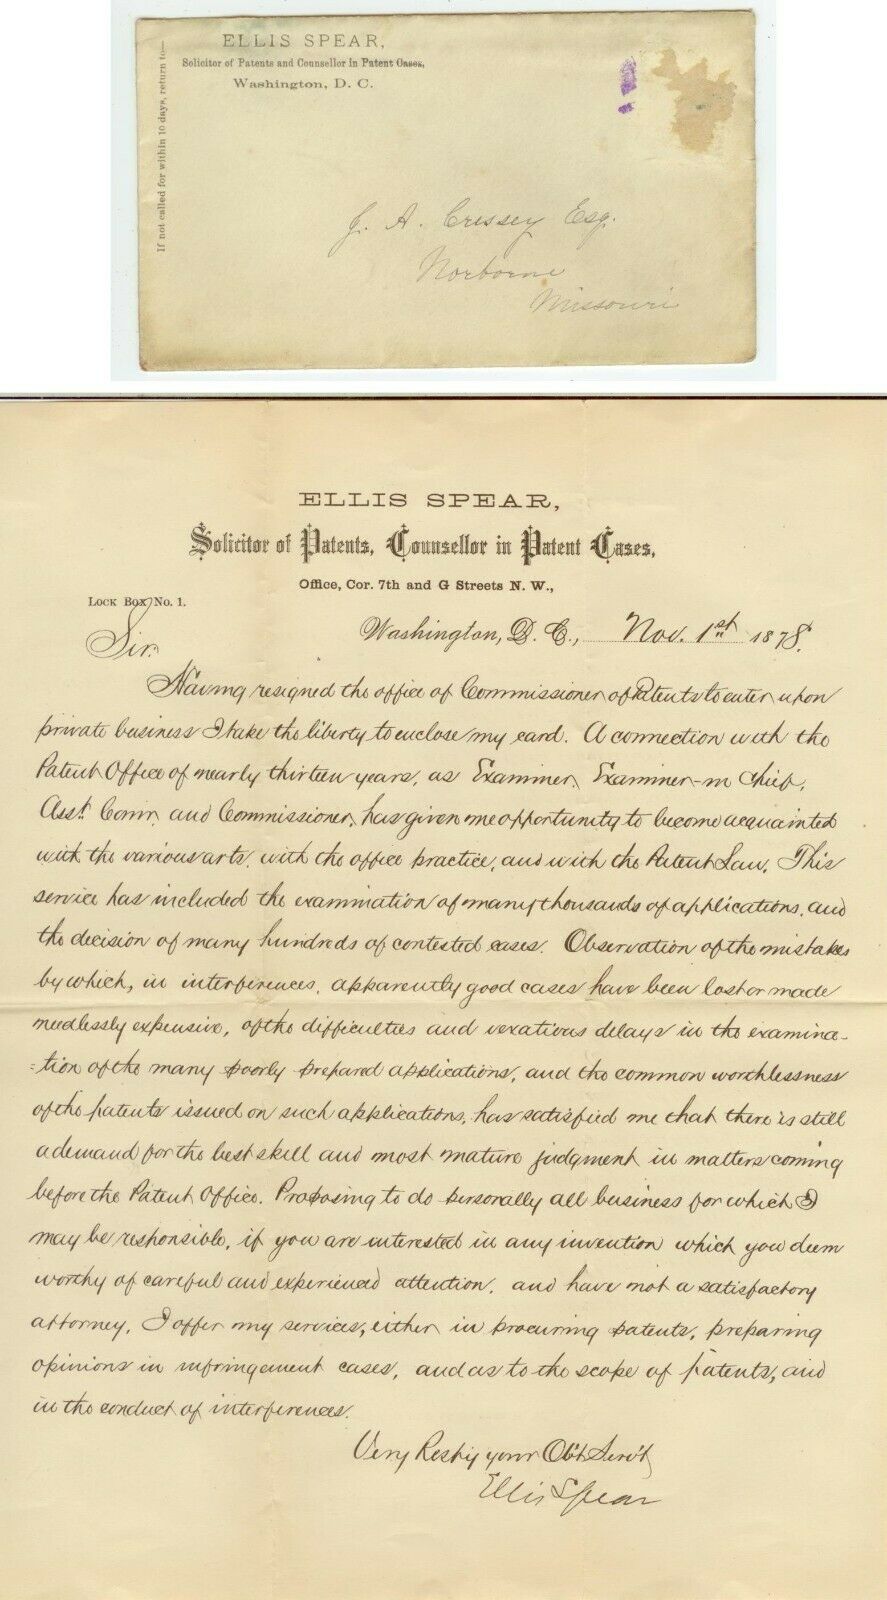 ELLIS SPEAR,
Solicitor of Patents and Counsellor in Patent Cases,
Washington, D. C.
If not called for within 10 days, return to—
J. A. Cressey Esq.
Norborne
Missouri
ELLIS SPEAR,
Solicitor of Patents, Counsellor in Patent Cases,
Office, Cor. 7th and G Streets N. W.,
Lock Box No. 1.
Washington, D. C., Nov. 1st 1878.
Sir:
Having resigned the office of Commissioner of Patents to enter upon
private business I take the liberty to enclose my card. A connection with the
Patent Office of nearly thirteen years, as Examiner, Examiner-in Chief,
Asst. Comr. and Commissioner, has given me opportunity to become acquainted
with the various arts, with the office practice, and with the Patent Law. This
service has included the examination of many thousands of applications, and
the decision of many hundreds of contested cases. Observation of the mistakes
by which, in interferences, apparently good cases have been lost or made
needlessly expensive, of the difficulties and vexatious delays in the examina-
-tion of the many poorly prepared applications, and the common worthlessness
of the patents issued on such applications, has satisfied me that there is still
a demand for the best skill and most mature judgment in matters coming
before the Patent Office. Proposing to do personally all business for which I
may be responsible, if you are interested in any invention which you deem
worthy of careful and experienced attention, and have not a satisfactory
attorney, I offer my services, either in procuring patents, preparing
opinions in infringement cases, and as to the scope of patents, and
in the conduct of interferences.
Very Resp'y your Ob't Serv't
Ellis Spear